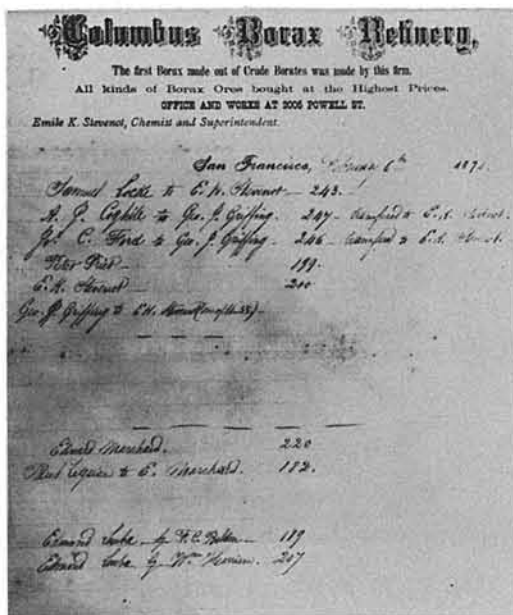 Columbus Borax Refinery,
The first Borax made out of Crude Borates was made by this firm.
All kinds of Borax Ores bought at the Highest Prices.
OFFICE AND WORKS AT 2005 POWELL ST.
Emile K. Stevenot, Chemist and Superintendent.
San Francisco, 6th 187
Samuel Locke to E. K. Stevenot — 243.
A. J. Coghill to Geo. J. Griffing. 247 — transfered to E. K. Stevenot.
C. Ford to Geo. J. Griffing. 246 — transfered to E. K. Stevenot.
Peter — 199.
E. K. Stevenot 200
Geo. J. Griffing to E. K.
Edward Marchard. 220
to E. Marchard. 182.
Edmond by F. C. 189
Edmond by Wm 207